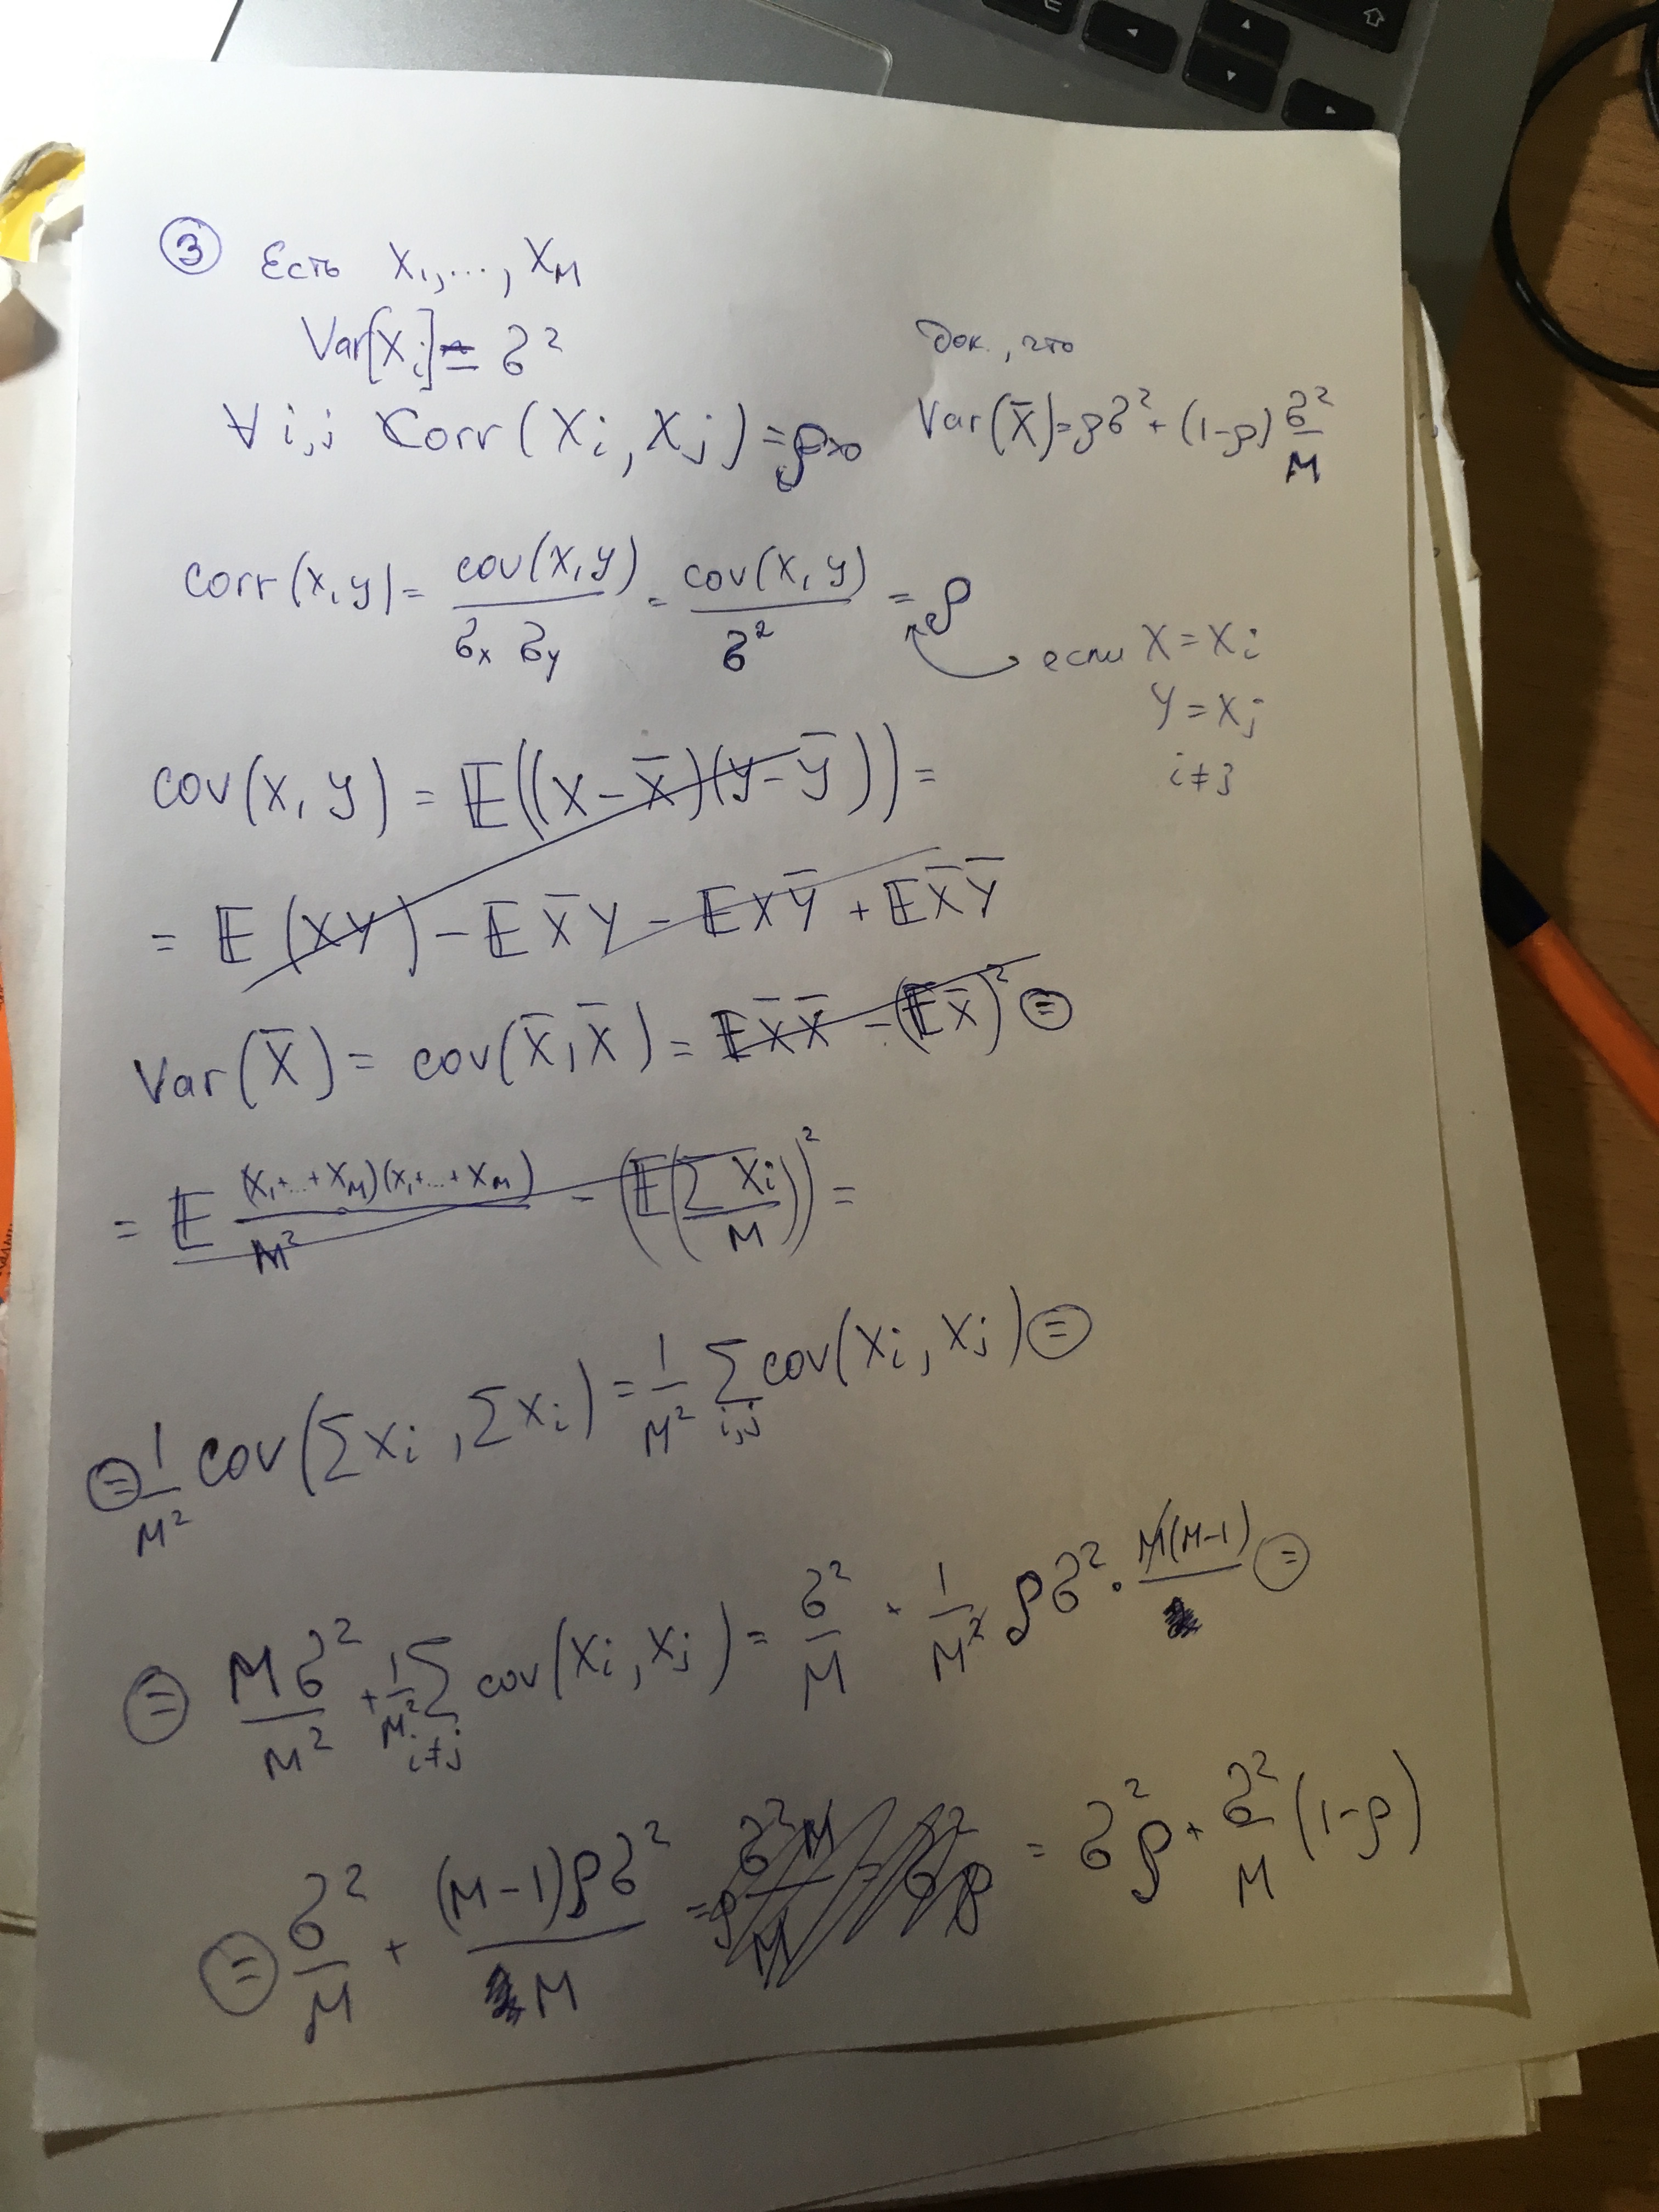 ③ Есть X₁, ..., X_M
Var[X_i] = σ²
∀ i,j Corr(X_i, X_j) = ρ>0
Док., что
Var(X̄) = ρσ² + (1-ρ) σ²/M
corr(x,y) = cov(x,y)/(σ_x σ_y) = cov(x,y)/σ² = ρ
если X = X_i
Y = X_j
i ≠ j
cov(x, y) = 𝔼((x-x̄)(y-ȳ)) =
= 𝔼(XY) - 𝔼X̄Y - 𝔼XȲ + 𝔼X̄Ȳ
Var(X̄) = cov(X̄, X̄) = 𝔼X̄X̄ - (𝔼X̄)² ⊜
= 𝔼 (x₁+...+x_M)(x₁+...+x_M)/M² - (𝔼(∑X_i/M))² =
⊜ 1/M² cov(∑x_i, ∑x_i) = 1/M² ∑_{i,j} cov(x_i, x_j) ⊜
⊜ Mσ²/M² + 1/M² ∑_{i≠j} cov(x_i, x_j) = σ²/M + 1/M² ρσ² · M(M-1) ⊜
⊜ σ²/M + (M-1)ρσ²/M = σ²ρ + σ²/M (1-ρ)